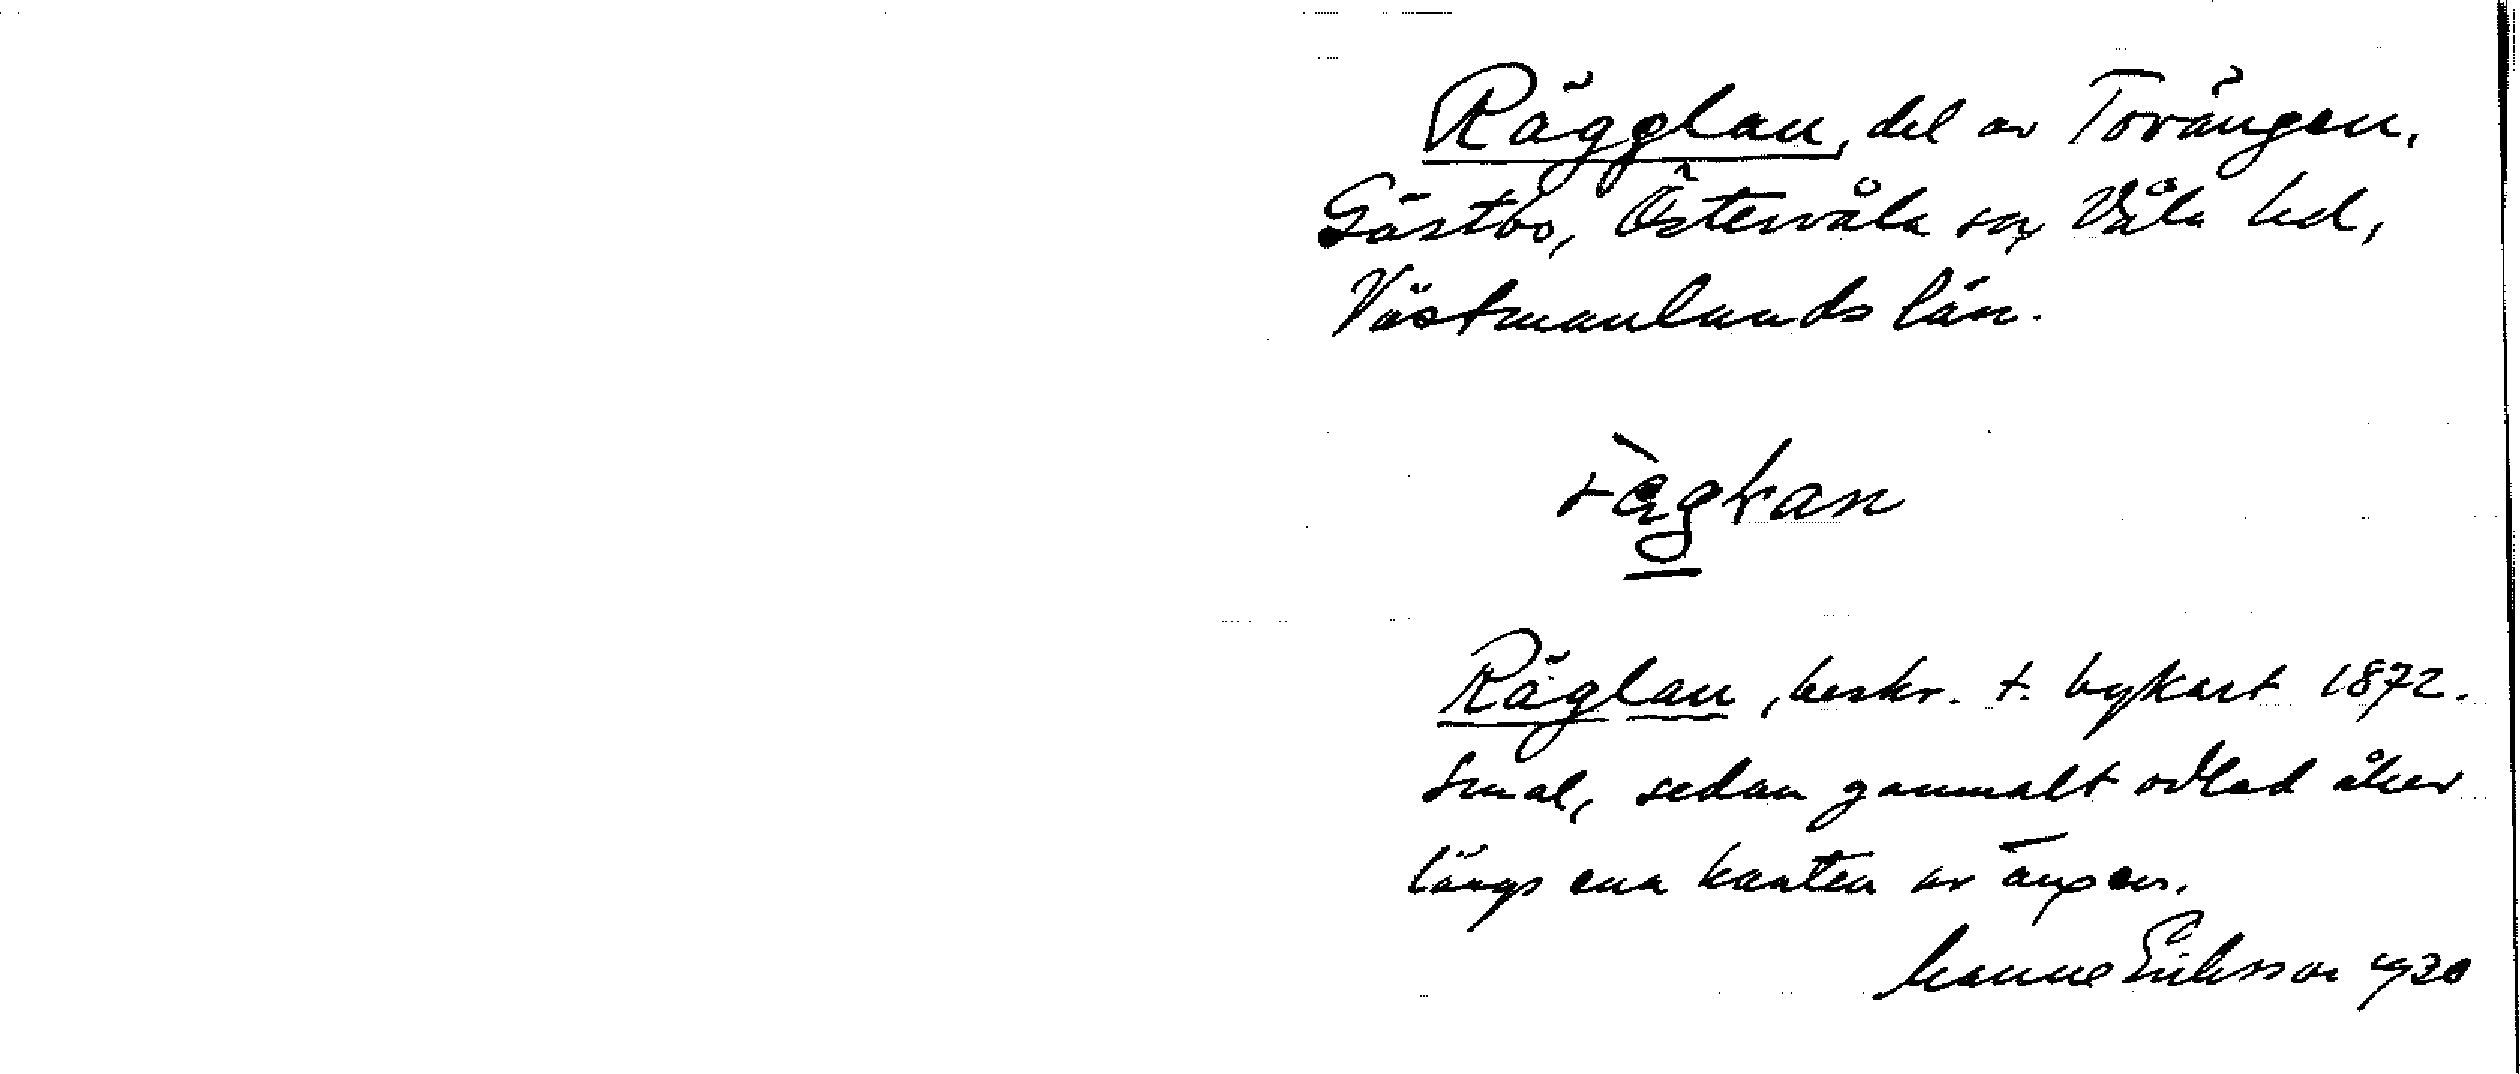 Rägglan, del av Torängen,
Gästbo, Östervåla sn, Våla hd,
Västmanlands län.
Räglan, beskr. t. bykart 1872.
Smal, sedan gammalt odlad åker
längs ena kanten av ängen.
Manne Eriksson 1930